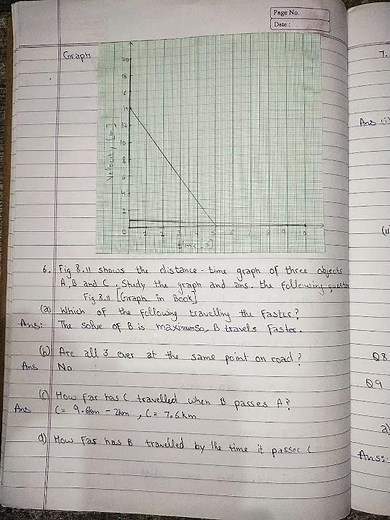 Page No.
Date:
Graph
Velocity
6. Fig 8.11 shows the distance-time graph of three objects
A, B and C. Study the graph and ans. the following
Fig 8.11 [Graph in Book]
(a) Which of the following travelling the Faster?
Ans: The solve of B is maximum so B travels Faster.
(b) Are all 3 ever at the same point on road?
Ans No
(c) How far has C travelled when B passes A?
Ans C = 9.6km - 2km, C = 7.6km
d) How Far has B travelled by the time it passes C
7.
Ans
Q8
Q9
Ans: